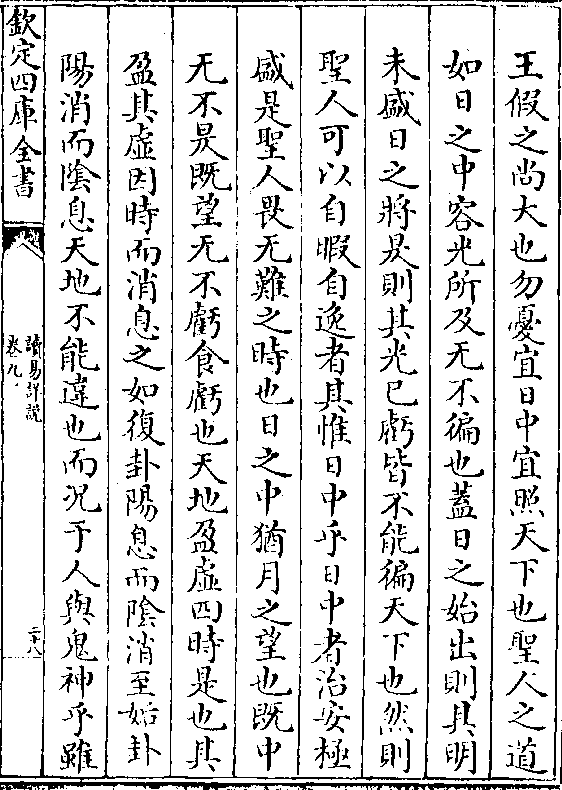 王假之尚大也勿憂宜日中宜照天下也聖人之道
如日之中容光所及无不徧也蓋日之始出則其明
未盛日之將昃則其光已虧皆不能徧天下也然則
聖人可以自暇自逸者其惟日中乎日中者治安極
盛是聖人畏无難之時也日之中猶月之望也既中
无不昃既望无不虧食虧也天地盈虚四時是也其
盈其虚因時而消息之如復卦陽息而陰消至姤卦
陽消而陰息天地不能違也而况于人與鬼神乎雖
欽定四庫全書
讀易詳說
卷九
二十八